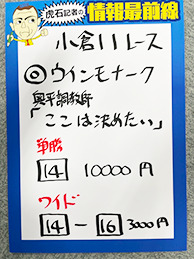 虎石記者の
情報最前線
小倉11レース
◎ウインモナーク
奥平調教師
「ここは決めたい」
単勝
14 10000円
ワイド
14-16 3000円